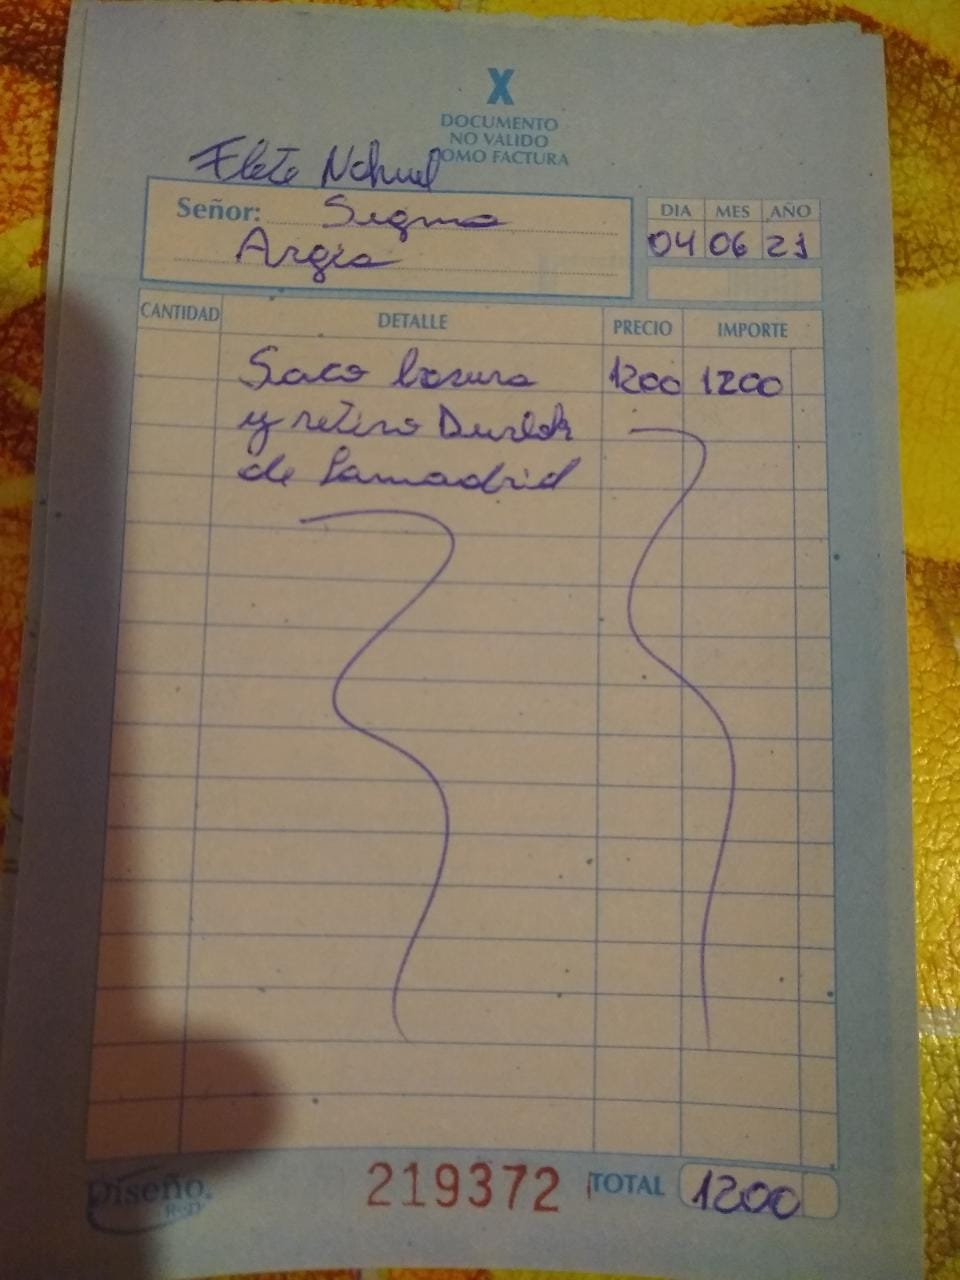 X
DOCUMENTO
NO VALIDO
COMO FACTURA
Flete Nahuel
Señor: Sigma
Argia
DIA MES AÑO
04 06 21
CANTIDAD DETALLE PRECIO IMPORTE
Saco basura 1200 1200
y retiro Durlok
de Lamadrid
Diseño
219372 TOTAL 1200